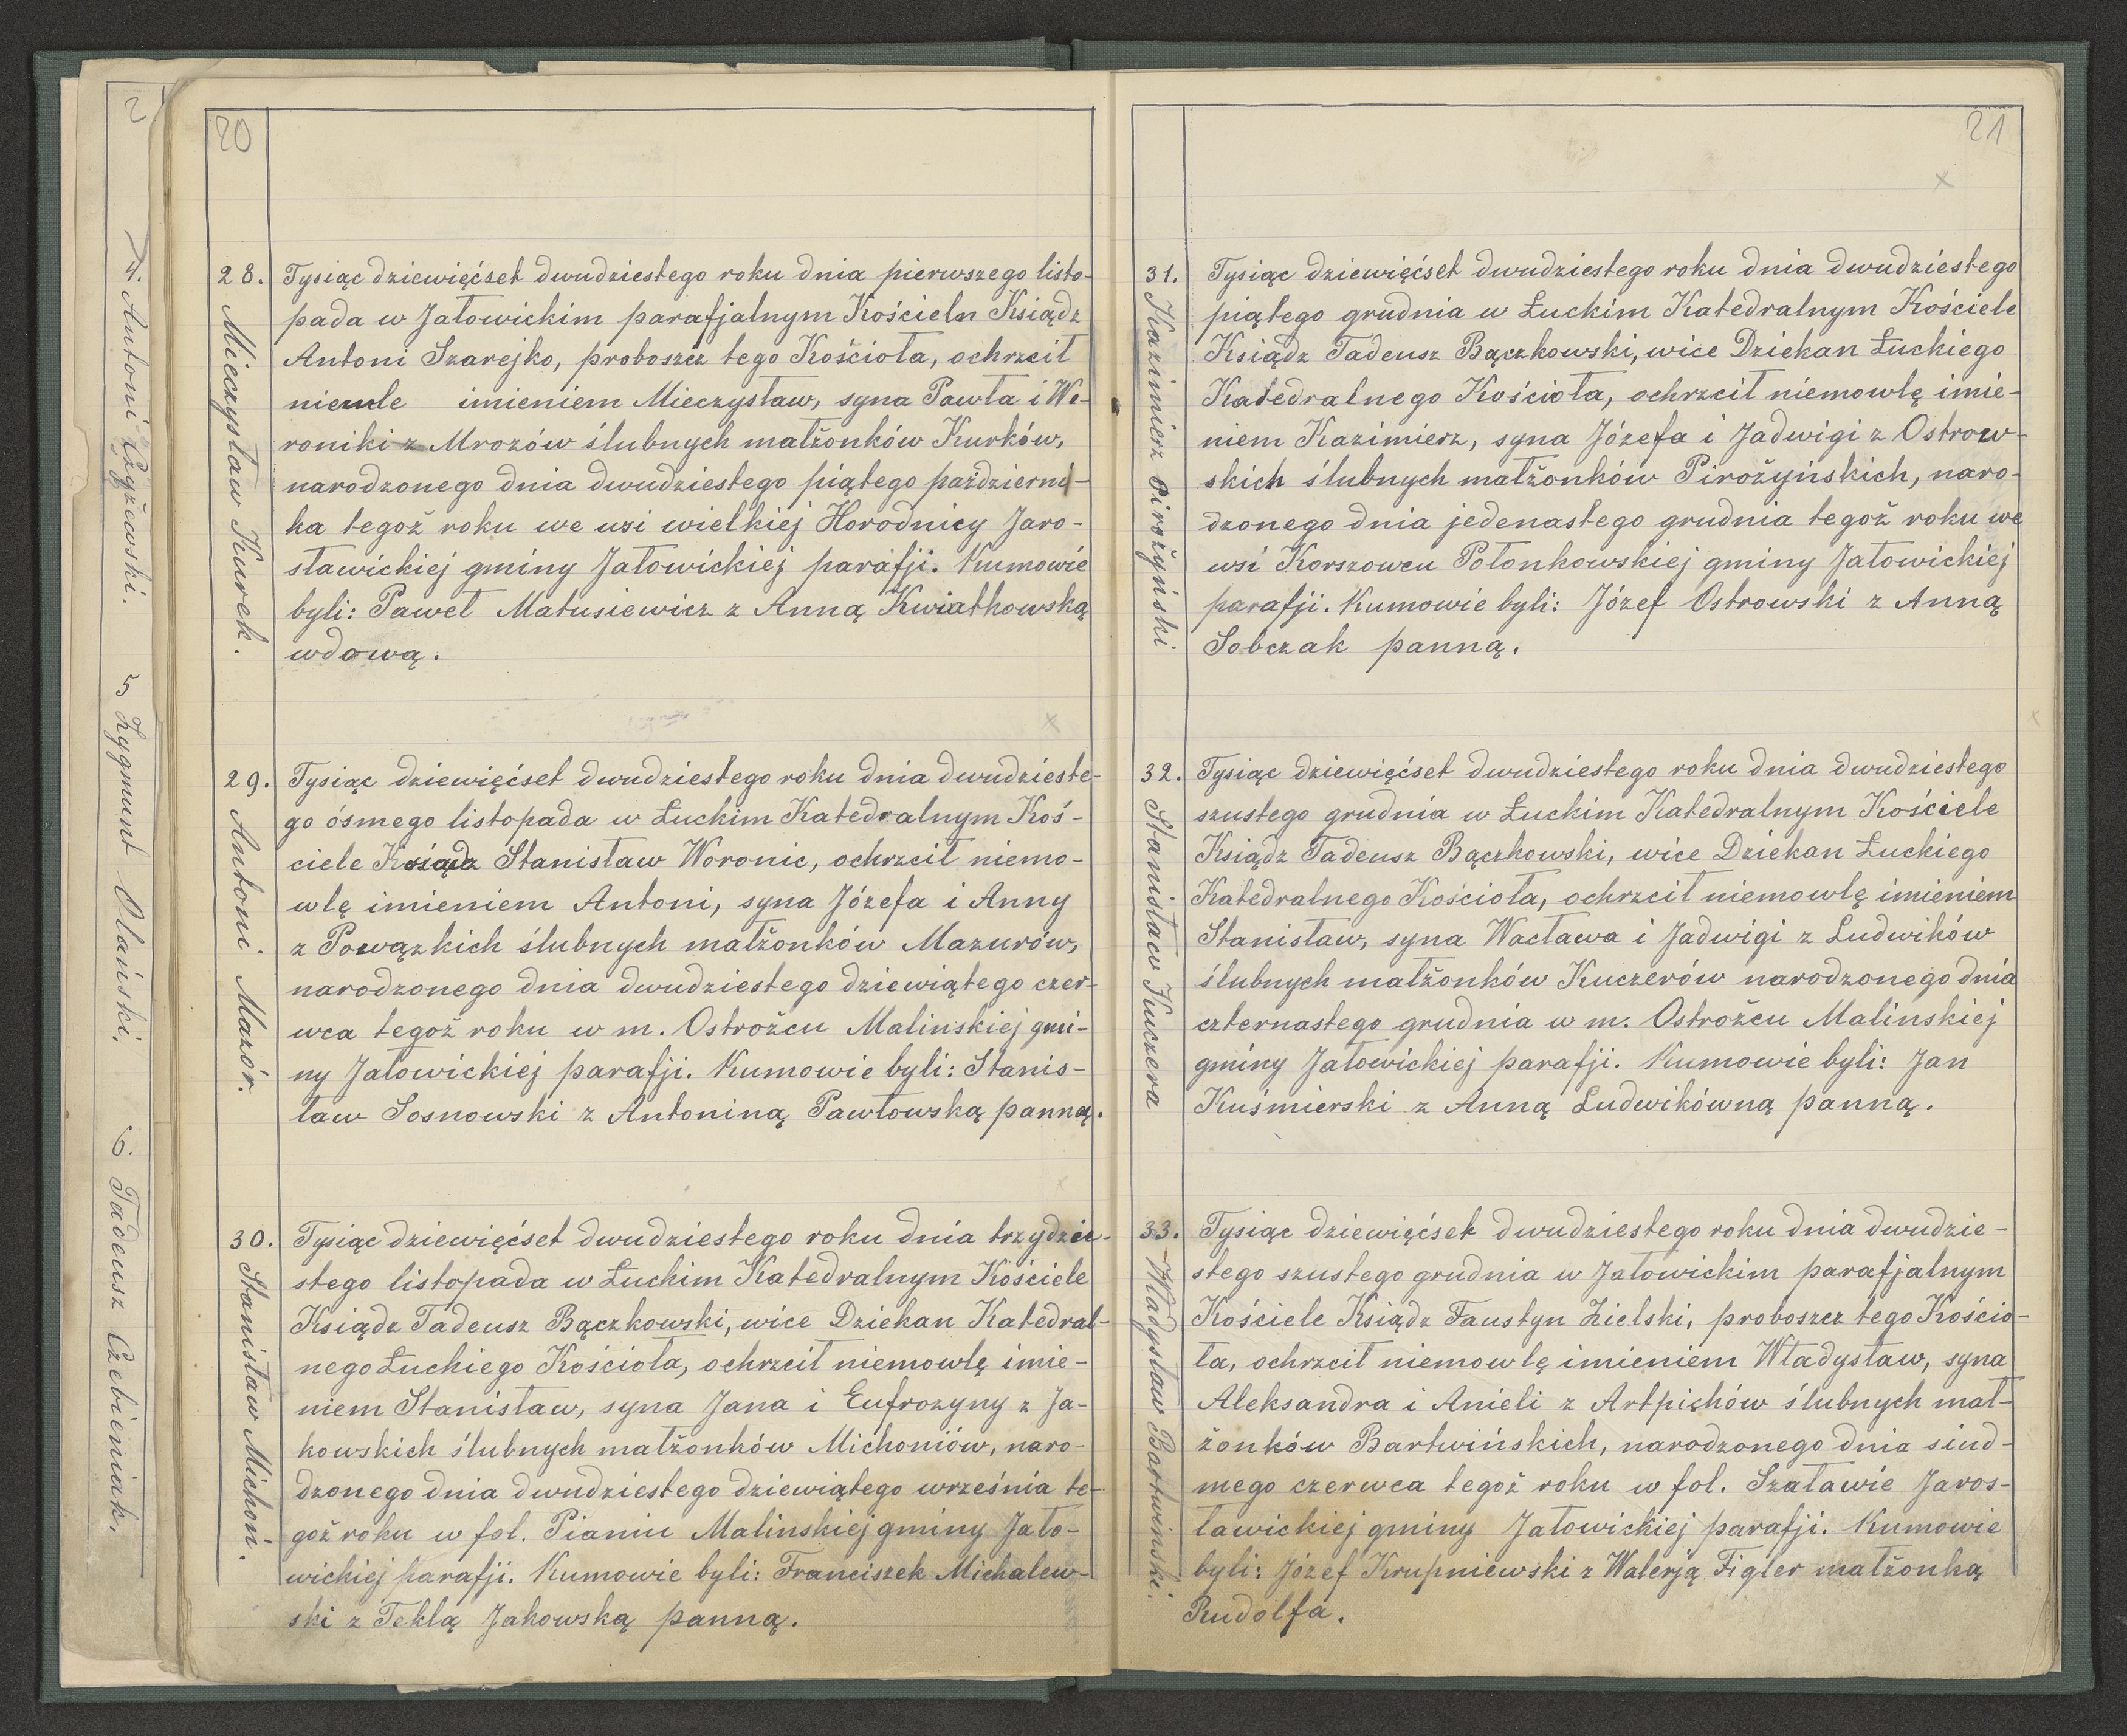 2
4. Antoni Czyżewski.
5 Zygmunt Olański.
6. Tadeusz Czebieniak.
20
28.
Mieczysław Kurek.
Tysiąc dziewięćset dwudziestego roku dnia pierwszego listo-
pada w Jałowickim parafjalnym Kościeln Ksiądz
Antoni Szarejko, proboszcz tego Kościoła, ochrzcił
niemle imieniem Mieczysław, syna Pawła i We-
roniki z Mrozów ślubnych małżonków Kurków,
narodzonego dnia dwudziestego piątego październi-
ka tegoż roku we wsi wielkiej Horodnicy Jaro-
sławickiej gminy Jałowickiej parafji. Kumowie
byli: Paweł Matusiewicz z Anną Kwiatkowską
wdową.
29.
Antoni Mazór.
Tysiąc dziewięćset dwudziestego roku dnia dwudzieste-
go ósmego listopada w Łuckim Katedralnym Koś-
ciele Ksiądz Stanisław Woronic, ochrzcił niemo-
wlę imieniem Antoni, syna Józefa i Anny
z Powązkich ślubnych małżonków Mazurów,
narodzonego dnia dwudziestego dziewiątego czer-
wca tegoż roku w m. Ostrożcu Malinskiej gmi-
ny Jałowickiej parafji. Kumowie byli: Stanis-
ław Sosnowski z Antoniną Pawłowską panną.
30.
Stanisław Michoń.
Tysiąc dziewięćset dwudziestego roku dnia trzydzie-
stego listopada w Łuckim Katedralnym Kościele
Ksiądz Tadeusz Bączkowski, wice Dziekan Katedral-
nego Łuckiego Kościoła, ochrzcił niemowlę imie-
niem Stanisław, syna Jana i Eufrozyny z Ja-
kowskich ślubnych małżonków Michoniów, naro-
dzonego dnia dwudziestego dziewiątego września te-
goż roku w fol. Pianiu Malinskiej gminy Jało-
wickiej parafji. Kumowie byli: Franciszek Michalew-
ski z Teklą Jakowską panną.
21
31.
Kazimierz Pirożyński.
Tysiąc dziewięćset dwudziestego roku dnia dwudziestego
piątego grudnia w Łuckim Katedralnym Kościele
Ksiądz Tadeusz Bączkowski, wice Dziekan Łuckiego
Katedralnego Kościoła, ochrzcił niemowlę imie-
niem Kazimierz, syna Józefa i Jadwigi z Ostrow-
skich ślubnych małżonków Pirożyńskich, naro-
dzonego dnia jedenastego grudnia tegoż roku we
wsi Korszowcu Połonkowskiej gminy Jałowickiej
parafji. Kumowie byli: Józef Ostrowski z Anną
Sobczak panną.
32.
Stanisław Kuczera
Tysiąc dziewięćset dwudziestego roku dnia dwudziestego
szustego grudnia w Łuckim Katedralnym Kościele
Ksiądz Tadeusz Bączkowski, wice Dziekan Łuckiego
Katedralnego Kościoła, ochrzcił niemowlę imieniem
Stanisław, syna Wacława i Jadwigi z Ludwików
ślubnych małżonków Kuczerów narodzonego dnia
czternastego grudnia w m. Ostrożcu Malinskiej
gminy Jałowickiej parafji. Kumowie byli: Jan
Kuśmierski z Anną Ludwikówną panną.
33.
Władysław Bartwiński.
Tysiąc dziewięćset dwudziestego roku dnia dwudzie-
stego szustego grudnia w Jałowickim parafjalnym
Kościele Ksiądz Faustyn Zielski, proboszcz tego Kościo-
ła, ochrzcił niemowlę imieniem Władysław, syna
Aleksandra i Anieli z Artpichów ślubnych mał-
żonków Bartwińskich, narodzonego dnia siud-
mego czerwca tegoż roku w fol. Szaławie Jaros-
ławickiej gminy Jałowickiej parafji. Kumowie
byli: Józef Krupniewski z Walerją Figler małżonką
Rudolfa.